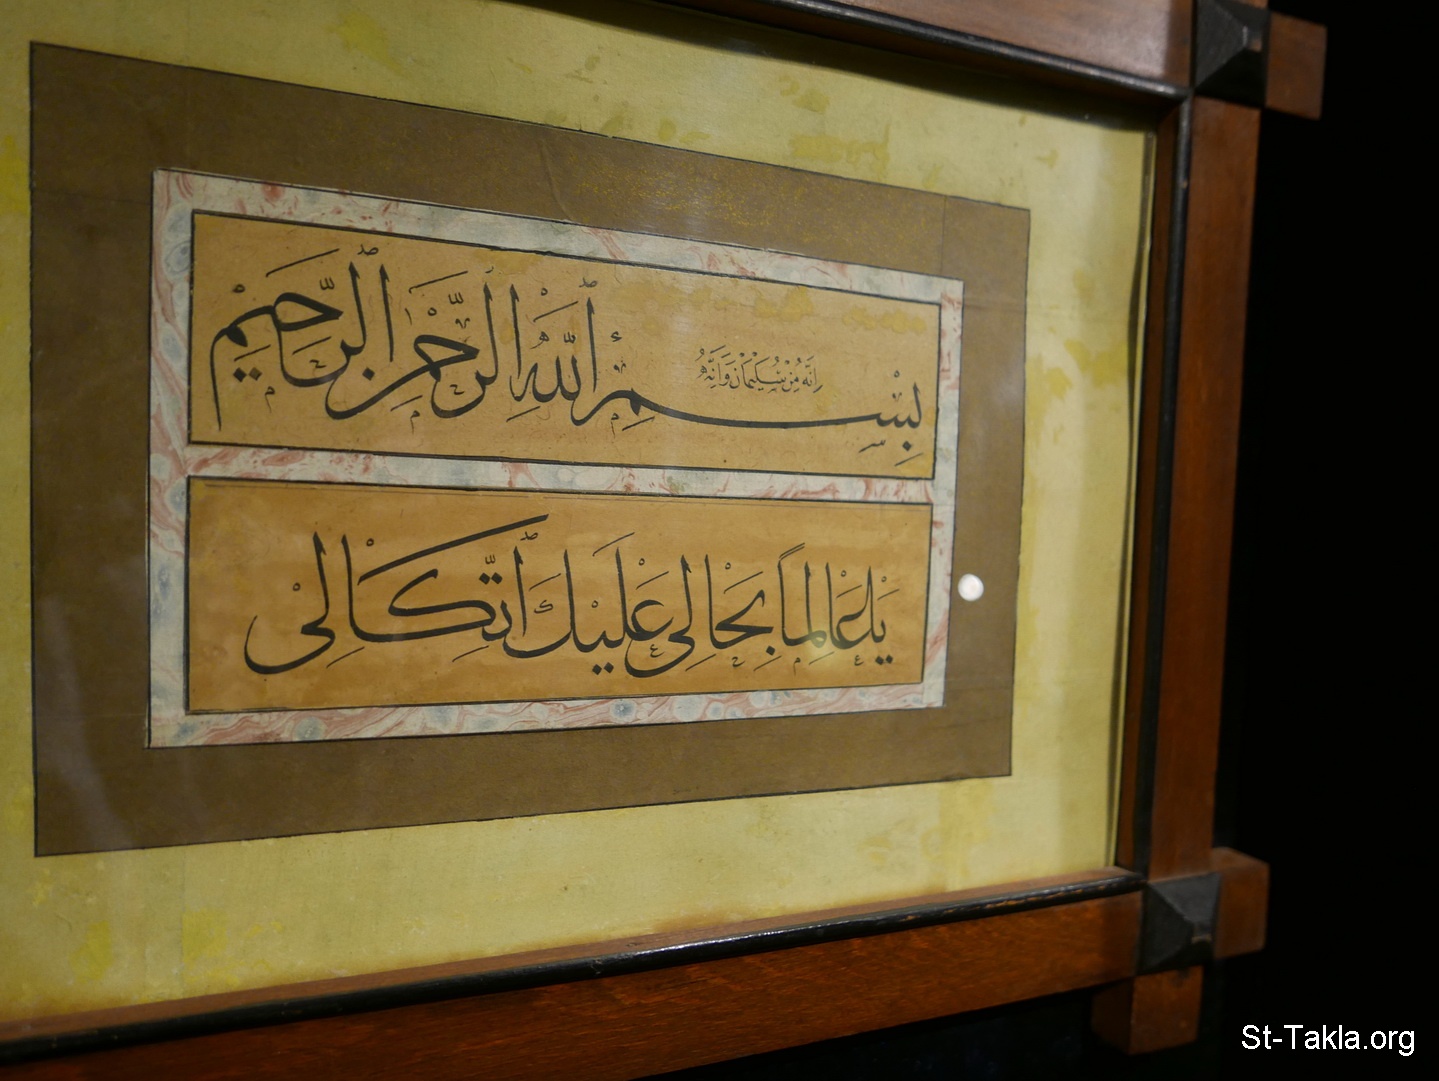 إِنَّهُ مِنْ سُلَيْمَانَ وَإِنَّهُ
بِسْمِ ٱللَّهِ ٱلرَّحْمَنِ ٱلرَّحِيمِ
يَا عَالِمًا بِحَالِي عَلَيْكَ ٱتِّكَالِي
St-Takla.org